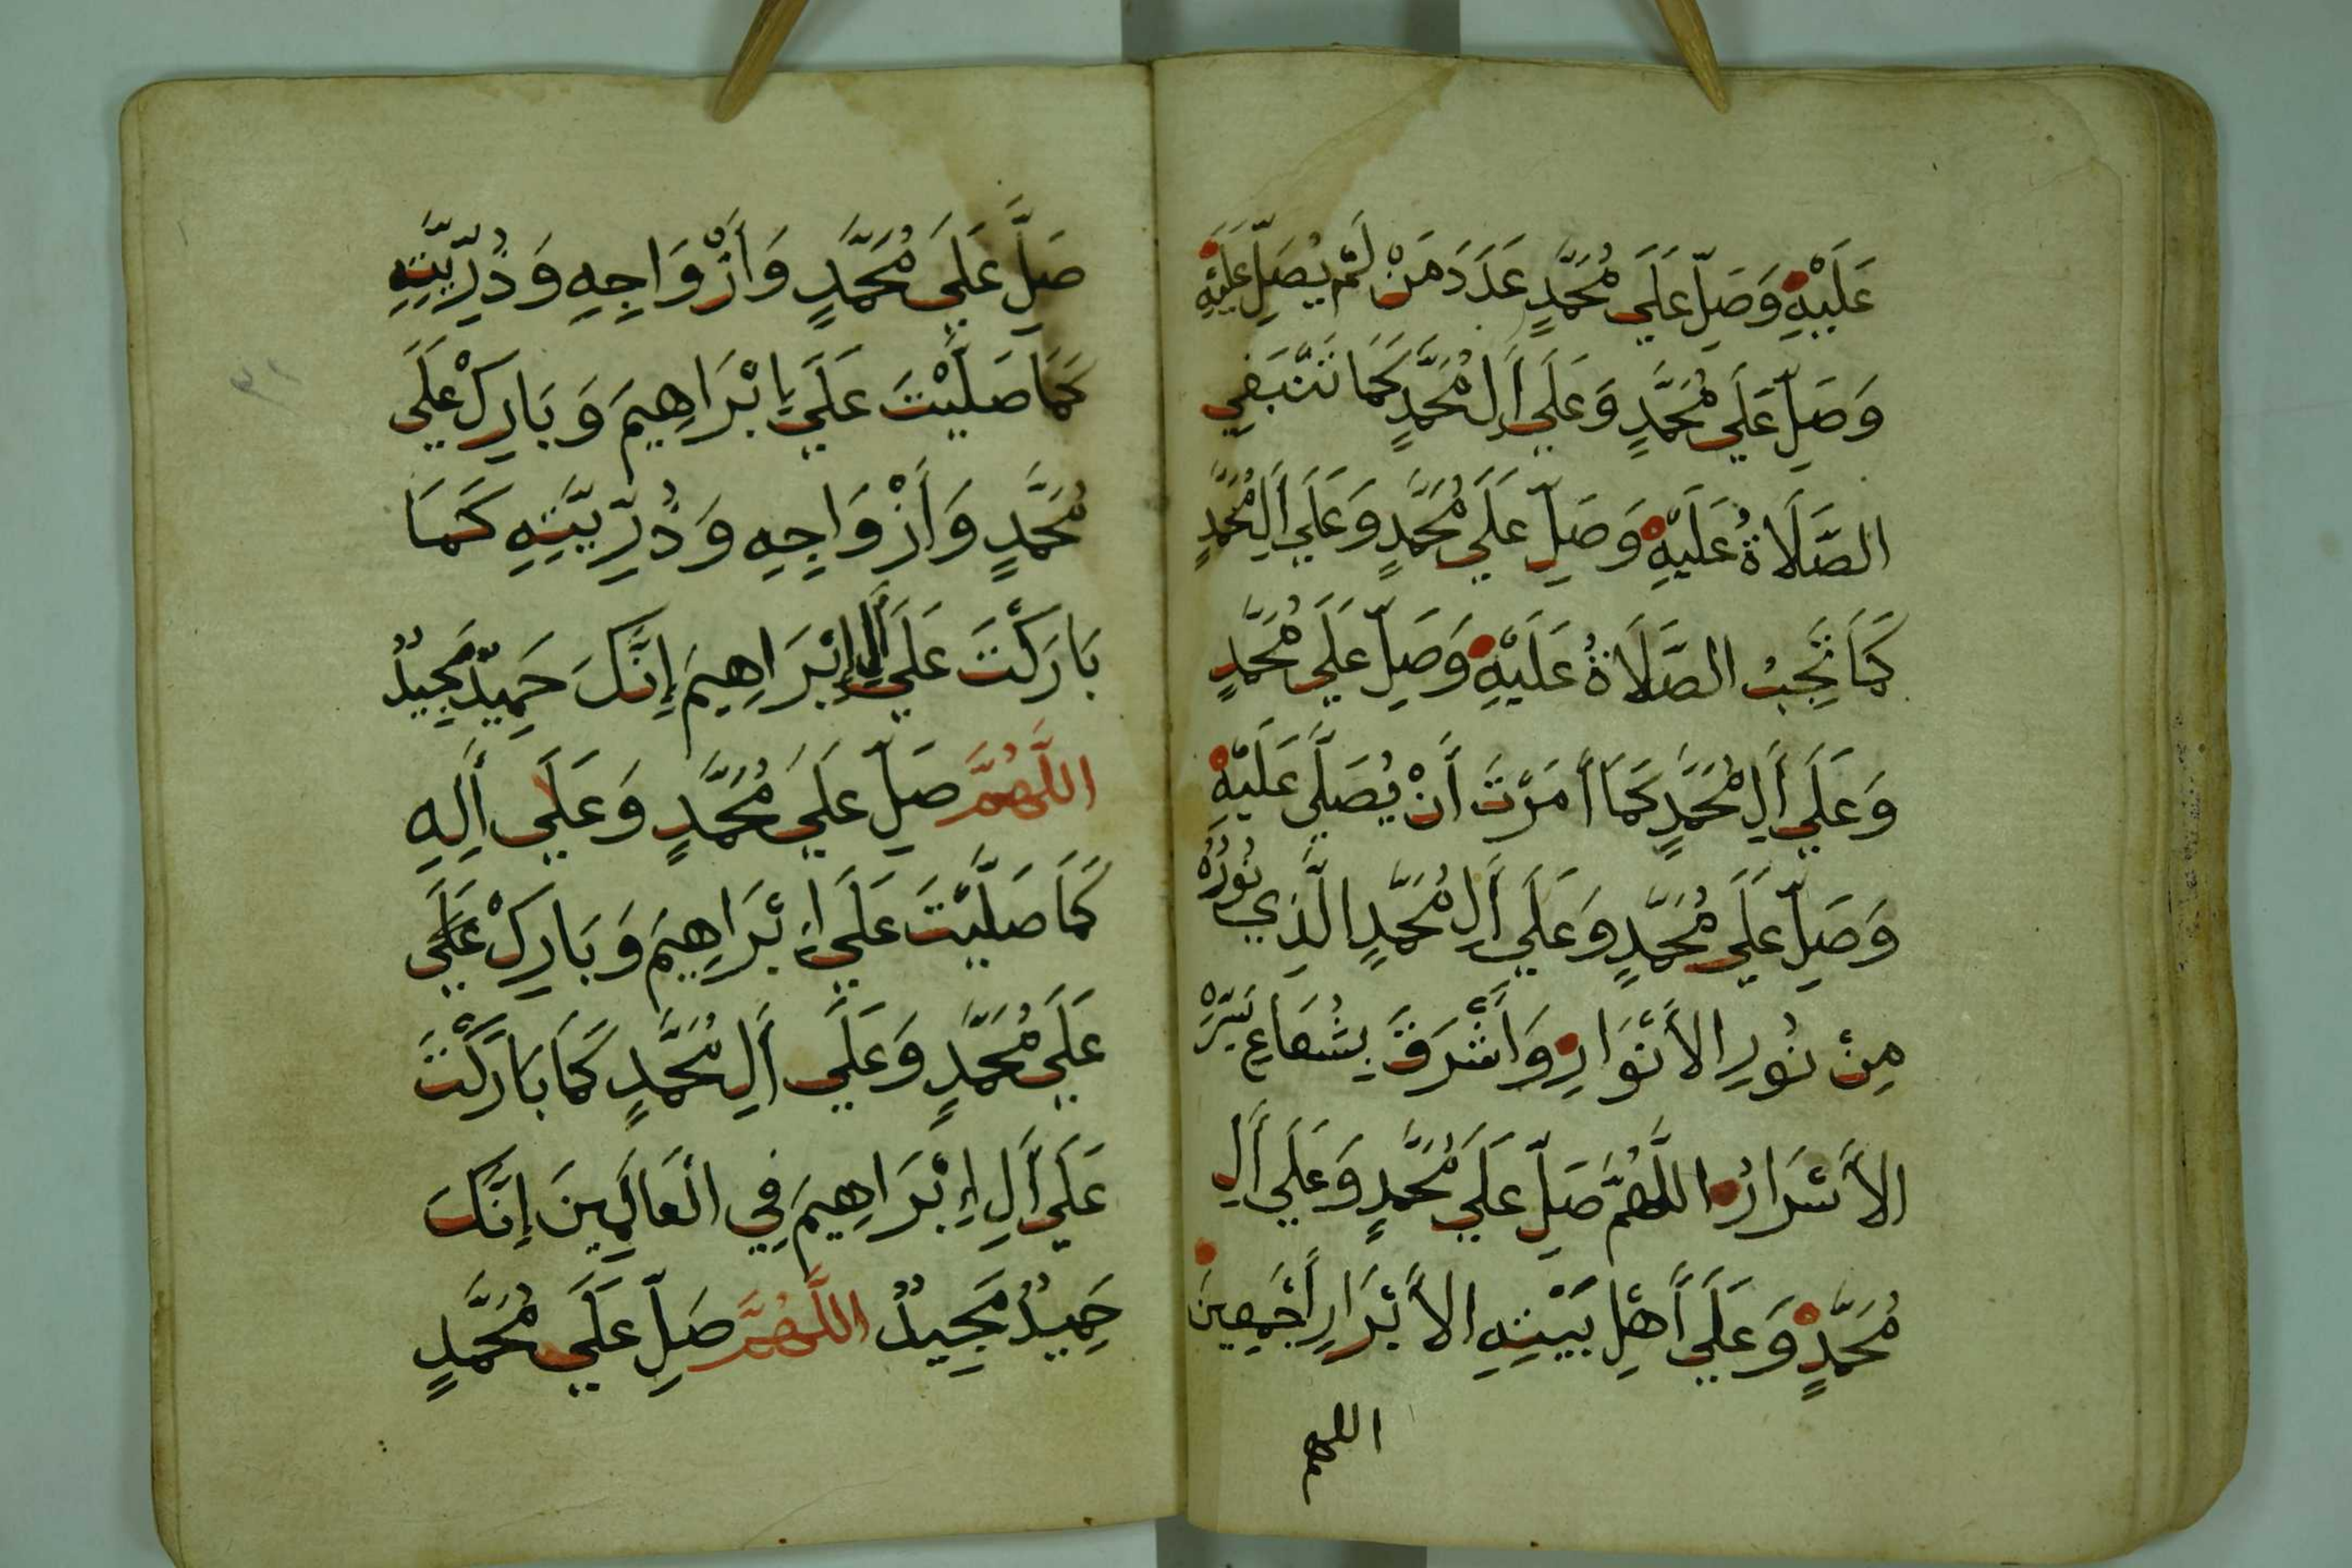 عَلَيْهِ وَصَلِّ عَلَى مُحَمَّدٍ عَدَدَ مَنْ لَمْ يُصَلِّ عَلَيْهِ
وَصَلِّ عَلَى مُحَمَّدٍ وَعَلَى أَلِ مُحَمَّدٍ كَمَا تَنْبَغِي
الصَّلَاةُ عَلَيْهِ وَصَلِّ عَلَى مُحَمَّدٍ وَعَلَى أَلِ مُحَمَّدٍ
كَمَا تَجِبُ الصَّلَاةُ عَلَيْهِ وَصَلِّ عَلَى مُحَمَّدٍ
وَعَلَى أَلِ مُحَمَّدٍ كَمَا أَمَرْتَ أَنْ يُصَلَّى عَلَيْهِ
وَصَلِّ عَلَى مُحَمَّدٍ وَعَلَى أَلِ مُحَمَّدٍ الَّذِي نُورُهُ
مِنْ نُورِ الأَنْوَارِ وَأَشْرَقَ بِشُعَاعِ سِرِّهِ
الأَسْرَارُ اللَّهُمَّ صَلِّ عَلَى مُحَمَّدٍ وَعَلَى أَلِ
مُحَمَّدٍ وَعَلَى أَهْلِ بَيْتِهِ الأَبْرَارِ أَجْمَعِينَ
اللهم
صَلِّ عَلَى مُحَمَّدٍ وَأَزْوَاجِهِ وَذُرِّيَّتِهِ
كَمَا صَلَّيْتَ عَلَى إِبْرَاهِيمَ وَبَارِكْ عَلَى
مُحَمَّدٍ وَأَزْوَاجِهِ وَذُرِّيَّتِهِ كَمَا
بَارَكْتَ عَلَى أَلِ إِبْرَاهِيمَ إِنَّكَ حَمِيدٌ مَجِيدٌ
اللَّهُمَّ صَلِّ عَلَى مُحَمَّدٍ وَعَلَى أَلِهِ
كَمَا صَلَّيْتَ عَلَى إِبْرَاهِيمَ وَبَارِكْ عَلَى
عَلَى مُحَمَّدٍ وَعَلَى أَلِ مُحَمَّدٍ كَمَا بَارَكْتَ
عَلَى أَلِ إِبْرَاهِيمَ فِي الْعَالَمِينَ إِنَّكَ
حَمِيدٌ مَجِيدٌ اللَّهُمَّ صَلِّ عَلَى مُحَمَّدٍ